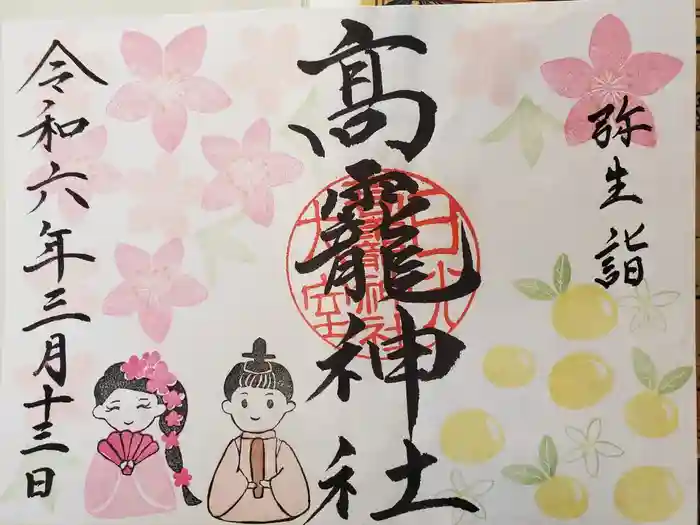 弥生詣
高龗神社
令和六年三月十三日